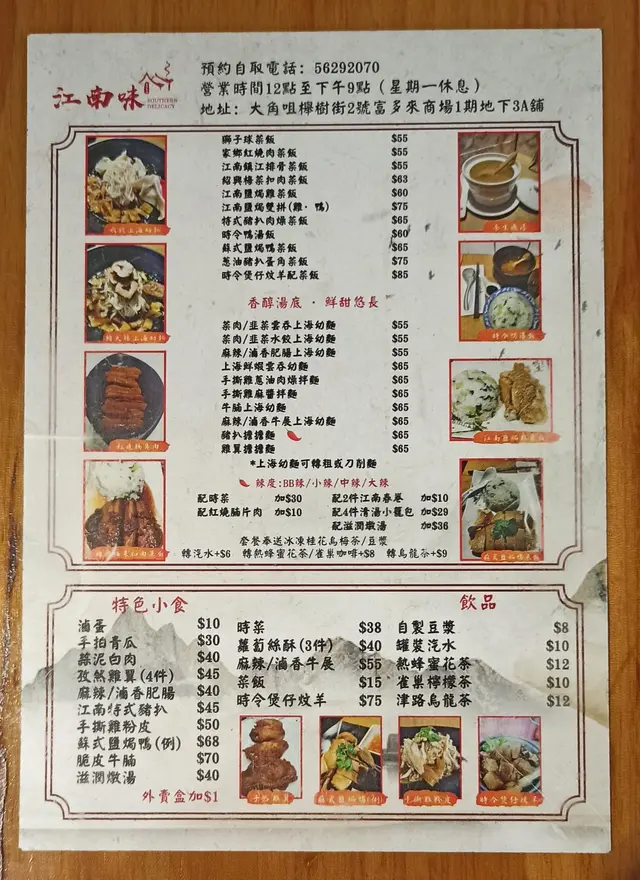 江南味
SOUTHERN
DELICACY
預約自取電話: 56292070
營業時間12點至下午9點(星期一休息)
地址: 大角咀櫸樹街2號富多來商場1期地下3A舖
獅子球菜飯 $55
家鄉紅燒肉菜飯 $55
江南鎮江排骨菜飯 $55
紹興梅菜扣肉菜飯 $63
江南鹽焗雞菜飯 $60
江南鹽焗雙拼(雞·鴨) $75
特式豬扒肉燥菜飯 $65
時令鴨湯飯 $60
蘇式鹽焗鴨菜飯 $65
蔥油豬扒蛋角菜飯 $75
時令煲仔炆羊配菜飯 $85
香醇湯底·鮮甜悠長
菜肉/韮菜雲吞上海幼麵 $55
菜肉/韮菜水餃上海幼麵 $55
麻辣/滷香肥腸上海幼麵 $55
上海鮮蝦雲吞幼麵 $65
手撕雞蔥油肉燥拌麵 $65
手撕雞麻醬拌麵 $65
牛腩上海幼麵 $65
麻辣/滷香牛展上海幼麵 $65
豬扒擔擔麵 $65
雞翼擔擔麵 $65
*上海幼麵可轉粗或刀削麵
辣度:BB辣/小辣/中辣/大辣
配時菜 加$30 配2件江南春卷 加$10
配紅燒腩片肉 加$10 配4件清湯小籠包 加$29
配滋潤燉湯 加$36
套餐奉送冰凍桂花烏梅茶/豆漿
轉汽水+$6 轉熱蜂蜜花茶/雀巢咖啡+$8 轉烏龍茶+$9
特色小食
滷蛋 $10
手拍青瓜 $30
蒜泥白肉 $40
孜然雞翼(4件) $45
麻辣/滷香肥腸 $40
江南特式豬扒 $45
手撕雞粉皮 $50
蘇式鹽焗鴨(例) $68
脆皮牛腩 $70
滋潤燉湯 $40
外賣盒加$1
時菜 $38
蘿蔔絲酥(3件) $40
麻辣/滷香牛展 $55
菜飯 $15
時令煲仔炆羊 $75
飲品
自製豆漿 $8
罐裝汽水 $10
熱蜂蜜花茶 $12
雀巢檸檬茶 $10
津路烏龍茶 $12